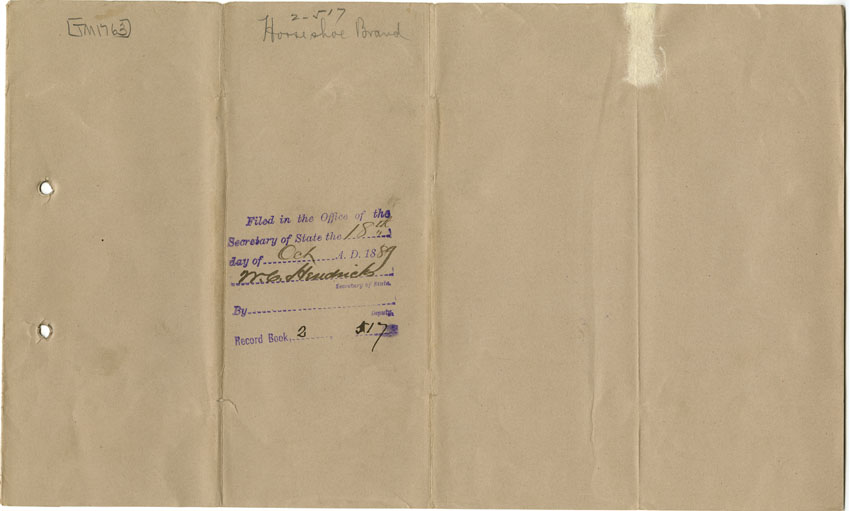 [TM1763]
2-517
Horseshoe Brand
Filed in the Office of the
Secretary of State the 18th
day of Oct A. D. 1889
W. C. Hendricks
Secretary of State.
By
Deputy.
Record Book, 2, 517